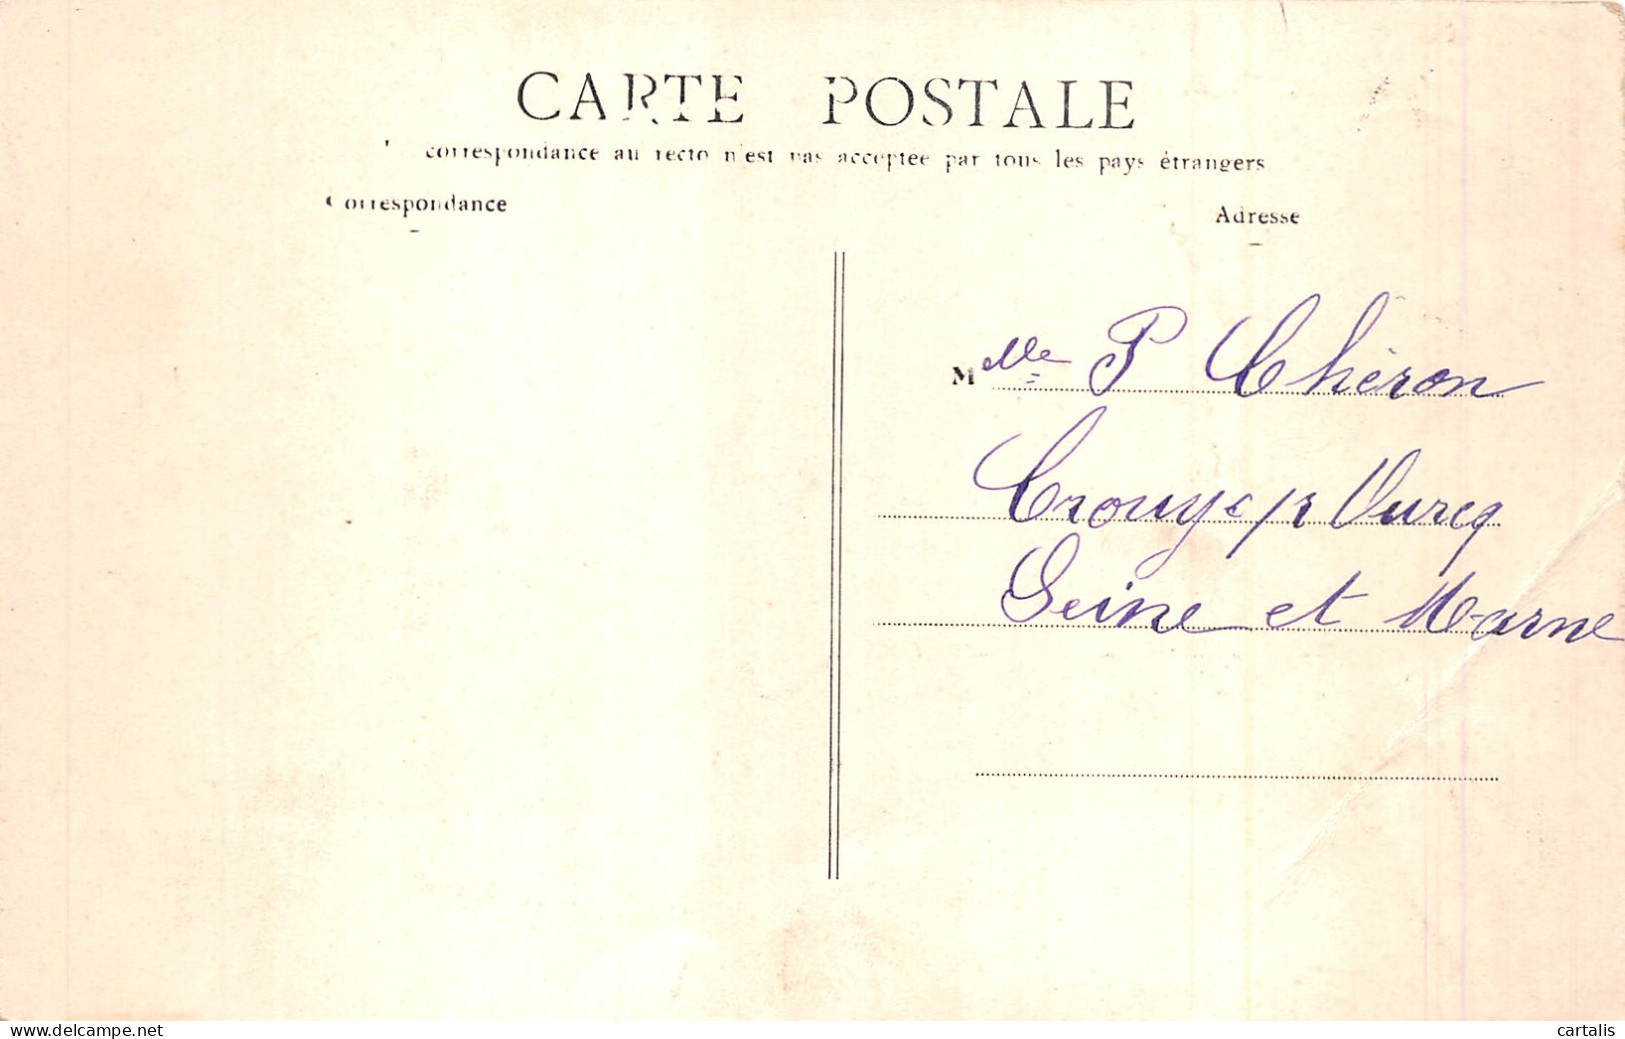 CARTE POSTALE
correspondance au recto n'est pas acceptée par tous les pays étrangers
Correspondance
Adresse
Melle P Chéron
Crouy s/r Ourcq
Seine et Marne
www.delcampe.net
cartalis